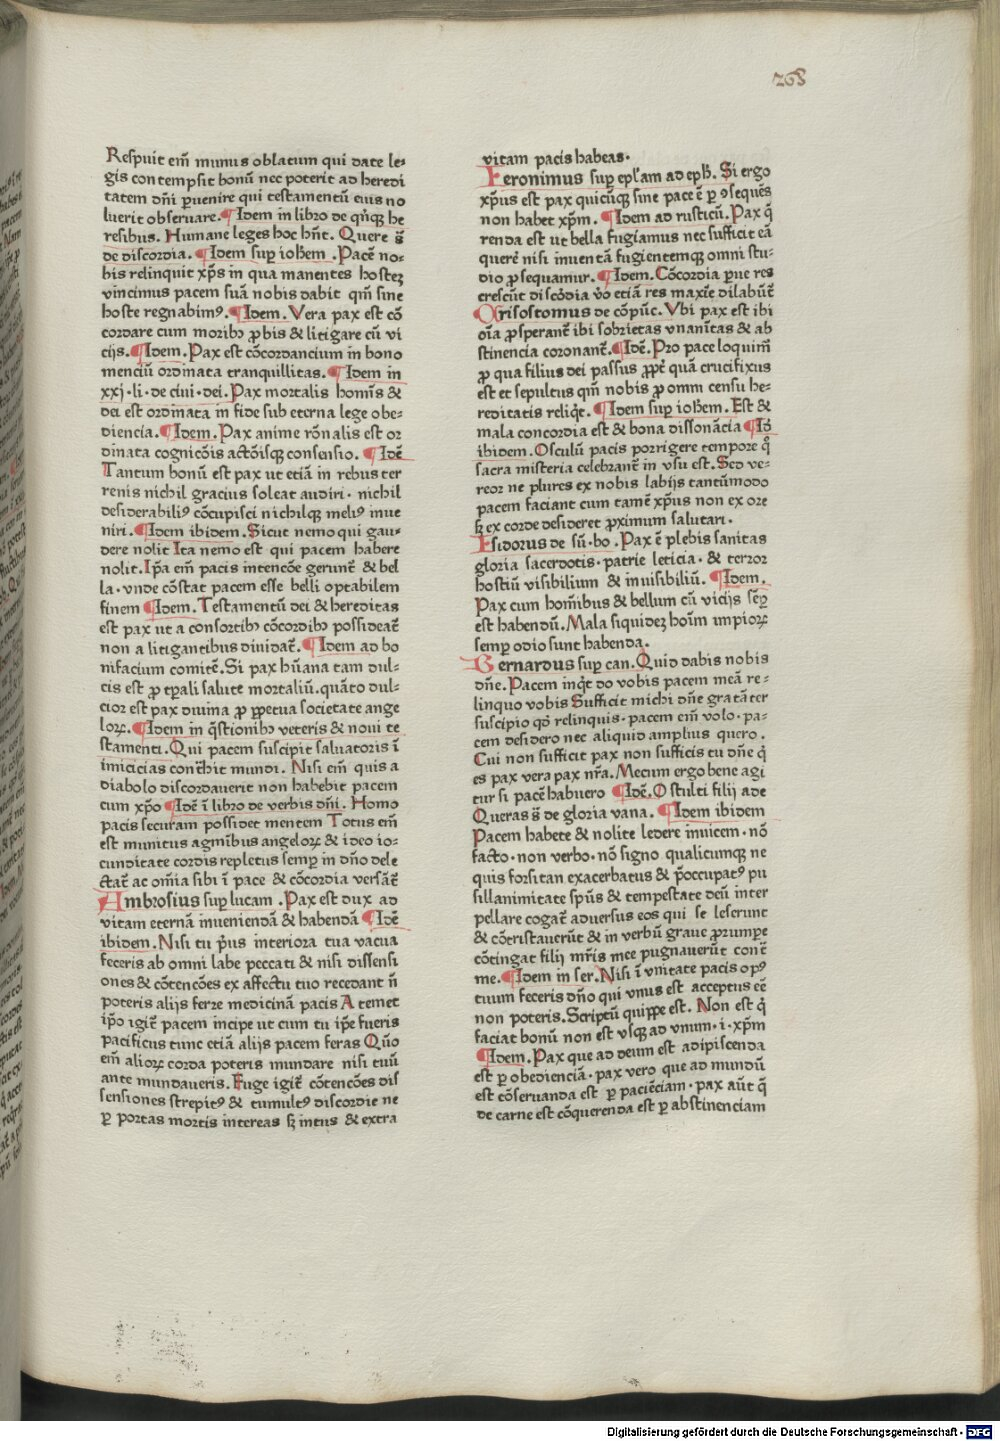 268
Respuit em̄ munus oblatum qui date le⸗
gis contempsit bonū nec poterit ad heredi
tatem dn̄i ꝑuenire qui testamentū eius no
luerit obseruare. ¶ Idem in libro de qn̄qꝫ he
resibus. Humane leges hoc hn̄t. Quere s̄
de discordia. ¶ Idem suꝑ ioh̄em. Pacē no⸗
bis relinquit xp̄s in qua manentes hostes
vincimus pacem suā nobis dabit qm̄ sine
hoste regnabimꝰ. ¶ Idem. Vera pax est cō
cordare cum moribꝫ ꝓbis & litigare cū vi
cijs. ¶ Idem. Pax est cōcordancium in bono
mencium ordinata tranquillitas. ¶ Idem in
xxj. li. de ciui. dei. Pax mortalis homīs &
dei est ordinata in fide sub eterna lege obe⸗
diencia. ¶ Idem. Pax anime rōnalis est or
dinata cognicōis actōisqꝫ consensio. ¶ Idē
Tantum bonū est pax ut etiā in rebus ter
renis nichil gracius soleat audiri. nichil
desiderabiliꝰ cōcupisci nichilqꝫ meliꝰ inue
niri. ¶ Idem ibidem. Sicut nemo qui gau⸗
dere nolit Ita nemo est qui pacem habere
nolit. Ip̄a em̄ pacis intencōe gerunt̄ & bel
la. vnde cōstat pacem esse belli optabilem
finem ¶ Idem. Testamentū dei & hereditas
est pax ut a consortibꝫ cōcordibꝫ possideat̄
non a litigantibus diuidat̄. ¶ Idem ad bo
nifacium comitē. Si pax hūana tam dul⸗
cis est ꝓ tꝑali salute mortaliū. quāto dul⸗
cior est pax diuina ꝓ ꝑpetua societate ange
loꝝ. ¶ Idem in q̄stionibꝫ veteris & noui te
stamenti. Qui pacem suscipit saluatoris ī
imicicias cont̄hit mundi. Nisi em̄ quis a
diabolo discordauerit non habebit pacem
cum xp̄o ¶ Idē ī libro de verbis dn̄i. Homo
pacis securam possidet mentem Totus em̄
est munitus agminībus angeloꝝ & ideo io⸗
cunditate cordis repletus semꝑ in dn̄o dele
ctat̄ ac om̄ia sibi ī pace & cōcordia versāt̄
Ambrosius suꝑ lucam. Pax est dux ad
vitam eternā inueniendā & habendā ¶ Idē
ibidem. Nisi tu pͥus interiora tua vacua
feceris ab omni labe peccati & nisi dissensi
ones & cōtencōes ex affectu tuo recedant n̄
poteris alijs ferre medicinā pacis A temet
ip̄o igit̄ pacem incipe ut cum tu ip̄e fueris
pacificus tunc etiā alijs pacem feras Quō
em̄ alioꝝ corda poteris mundare nisi tuū
ante mundaueris. Fuge igit̄ cōtencōes dis
sensiones strepitꝰ & tumultꝰ discordie ne
ꝑ portas mortis intereas sꝫ intus & extra
vitam pacis habeas.
Ieronimus suꝑ epl̄am ad eph̄. Si ergo
xp̄us est pax quicūqꝫ sine pace ē ꝑ ꝯsequēs
non habet xp̄m. ¶ Idem ad rusticū. Pax q̄
renda est ut bella fugiamus nec sufficit eā
querē nisi inuentā fugientemqꝫ omni stu⸗
dio ꝓsequamur. ¶ Idem. Cōcordia ꝑue res
crescūt discōdia v̄o etiā res maxīe dilabūt̄
Crisostomus de cōpūc. Vbi pax est ibi
oīa ꝓsperant̄ ibi sobrietas vnanītas & ab
stinencia coronant̄. ¶ Idē. Pro pace loquim̄
ꝓ qua filius dei passus ꝓpt̄ quā crucifixus
est et sepultus qm̄ nobis ꝓ omni censu he⸗
reditatis reliqͥt. ¶ Idem suꝑ ioh̄em. Est &
mala concordia est & bona dissonācia ¶ Id̄
ibidem. Osculū pacis porrigere tempore qͦ
sacra misteria celebrant̄ in vsu est. Sed ve⸗
reor ne plures ex nobis labijs tantūmodo
pacem faciant cum tamē xp̄us non ex ore
sꝫ ex corde desideret ꝓximum salutari.
Isidorus de sū. bo. Pax ē plebis sanitas
gloria sacerdotis. patrie leticia. & terror
hostiū visibilium & inuisibiliū. ¶ Idem.
Pax cum homībus & bellum cū vicijs semꝑ
est habendū. Mala siquidez hoīm impioꝝ
semꝑ odio sunt habenda.
Bernardus suꝑ can. Quid dabis nobis
dn̄e. Pacem inqͥt do vobis pacem meā re⸗
linquo vobis Sufficit michi dn̄e gratāter
suscipio qd̄ relinquis. pacem em̄ volo. pa⸗
cem desidero nec aliquid amplius quero.
Cui non sufficit pax non sufficis tu dn̄e qͥ
es pax vera pax nr̄a. Mecum ergo bene agi
tur si pacē habuero ¶ Idē. O stulti filij ade
Queras s̄ de gloria vana. ¶ Idem ibidem
Pacem habete & nolite ledere inuicem. nō
facto. non verbo. nō signo qualicumqꝫ ne
quis forsitan exacerbatus & p̄occupatꝰ pu
sillanimitate spūs & tempestate deū inter
pellare cogat̄ aduersus eos qui se leserunt
& cōtristauerūt & in verbū graue ꝓrumpere
cōtingat filij mr̄is mee pugnauerūt contͣ
me. ¶ Idem in ser. Nisi ī vnitate pacis opꝰ
tuum feceris dn̄o qui vnus est acceptus eē
non poteris. Scriptū quippe est. Non est qͥ
faciat bonū non est vsqꝫ ad vnum. i. xp̄m
¶ Idem. Pax que ad deum est adipiscenda
est ꝑ obedienciā. pax vero que ad mundū
est cōseruanda est ꝑ pacienciam. pax aūt q̄
de carne est cōquerenda est ꝑ abstinenciam
Digitalisierung gefördert durch die Deutsche Forschungsgemeinschaft - DFG